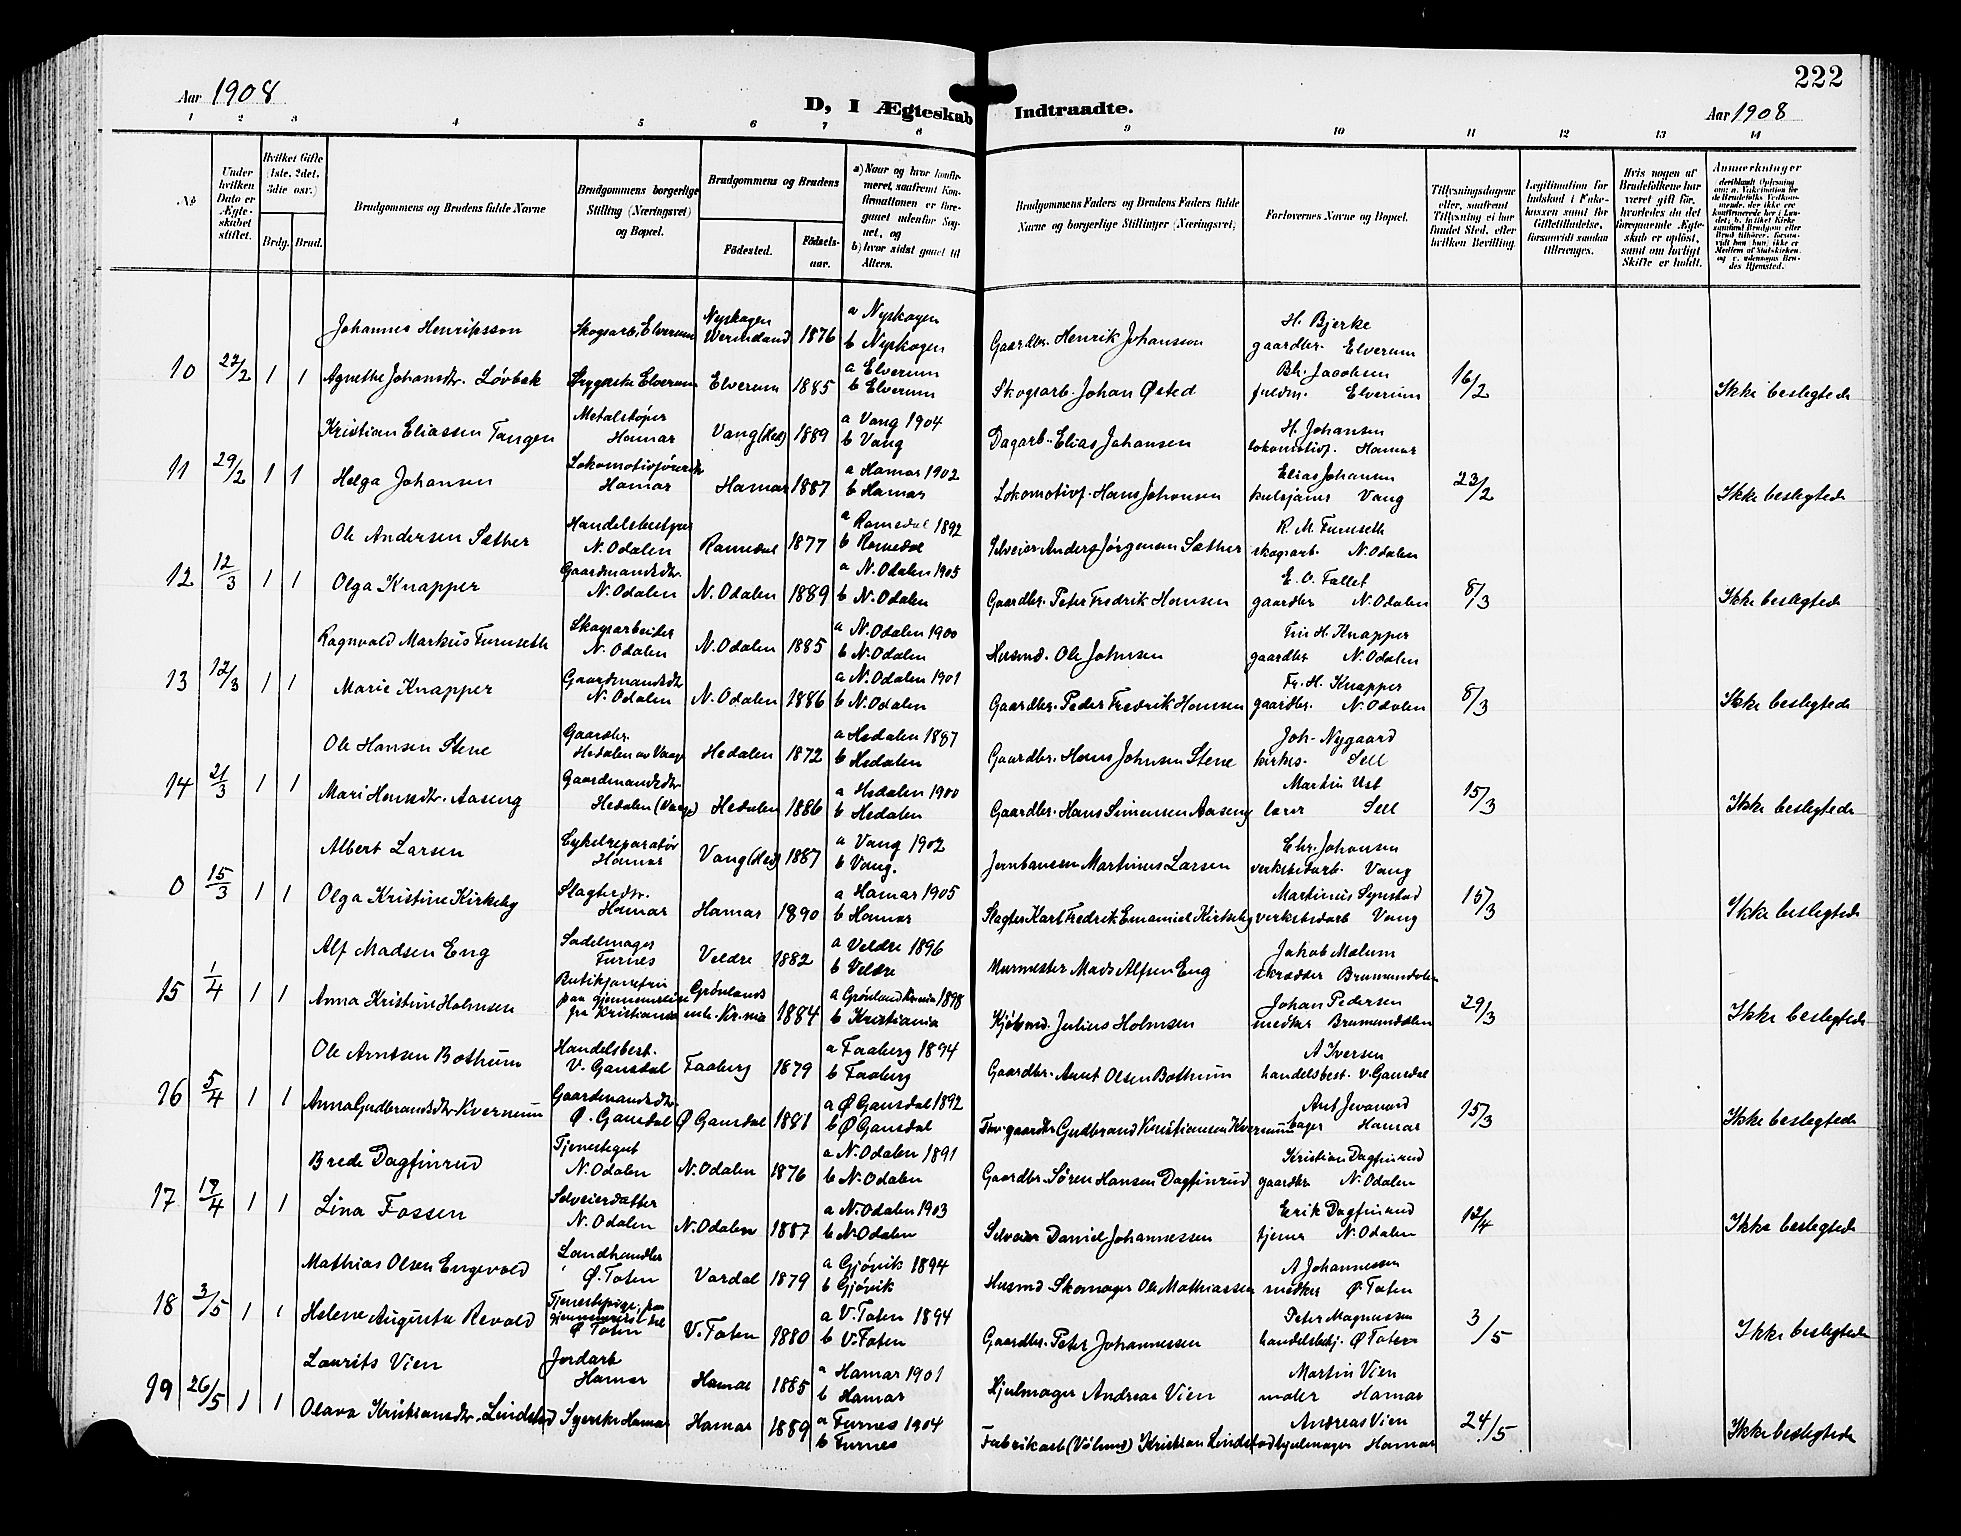 222
Aar 1908
D, I Ægteskab Indtraadte.
Aar 1908
1 2 3 4 5 6 7 8 9 10 11 12 13 14
No
Under hvilken Dato er Ægteskabet stiftet.
Hvilket Gifte (1ste, 2det, 3die osv.)
Brdg. Brud.
Brudgommens og Brudens fulde Navne
Brudgommens borgerlige Stilling (Næringsvei) og Bopæl.
Brudgommens og Brudens
Fødested. Fødselsaar.
a) Naar og hvor konfirmeret, saafremt Konfirmationen er foregaaet udenfor Sognet, og
b) hvor sidst gaaet til Alters.
Brudgommens Faders og Brudens Faders fulde Navne og borgerlige Stillinger (Næringsvei)
Forlovernes Navne og Bopæl.
Tillysningsdagene eller, saafremt Tillysning ei har fundet Sted, efter hvilken Bevilling.
Legitimation for Indskud i Enkekassen samt for Giftetilladelse, forsaavidt saadan tiltrænges.
Hvis nogen af Brudefolkene har været gift før, hvorledes da det foregaaende Ægteskab er opløst, samt om lovligt Skifte er holdt.
Anmærkninger
Johannes Henriksson Skogsarb. Elverum Nyskogen Wermland 1876 a Nyskogen b Nyskogen Gaardbr. Henrik Johansson H. Bjerke gaardbr. Elverum
10 22/2 1 1 Agnethe Johansdtr. Løvbak Sygerske Elverum Elverum 1885 a Elverum b Elverum Skogsarb. Johan Østed Bh. Jacobsen Elverum 16/2 Ikke beslegtede
Kristian Eliassen Tangen Metalstøper Hamar Vang (Hed) 1889 a Vang 1904 b Vang Dagarb. Elias Johansen H. Johansen lokomotivf. Hamar
11 29/2 1 1 Helga Johansen Hamar Hamar 1887 a Hamar 1902 b Hamar Lokomotivf. Hans Johansen Elias Johansen Vang 23/2 Ikke beslegtede
Ole Andersen Sæther Handelsbestyrer N. Odalen Romedal 1877 a Romedal 1892 b Romedal Selveier Anders Jørgensen Sæther R. M. Furuseth skogsarb. N. Odalen
12 12/3 1 1 Olga Knapper Gaardmandsdtr. N. Odalen N. Odalen 1889 a N. Odalen 1905 b N. Odalen Gaardbr. Peter Fredrik Hansen E. O. Fallet gaardbr N. Odalen 8/3 Ikke beslegtede
Ragnvald Markus Furuseth Skogsarbeider N. Odalen N. Odalen 1885 a N. Odalen 1900 b N. Odalen Husmd. Ole Johnsen H. Knapper gaardbr N. Odalen
13 12/3 1 1 Marie Knapper Gaardmandsdtr N. Odalen N. Odalen 1886 a N. Odalen 1901 b N. Odalen Gaardbr. Peder Fredrik Hansen Fr. H. Knapper gaardbr. N. Odalen 8/3 Ikke beslegtede
Ole Hansen Stene Gaardbr. Hedalen av Vaage Hedalen 1872 a Hedalen 1887 b Hedalen Gaardbr. Hans Johnsen Stene Joh. Nygaard kirkes. Sell
14 21/3 1 1 Mari Hansdtr. Aaseng Gaardmandsdtr Hedalen (Vaage) Hedalen 1886 a Hedalen 1900 b Hedalen Gaardbr. Hans Simensen Aaseng Martin Ust lærer Sell 15/3 Ikke beslegtede
Albert Larsen Cykelreparatør Hamar Vang (Hed) 1887 a Vang 1902 b Vang. Martinus Larsen Chr. Johansen verkstedarb. Vang
0 15/3 1 1 Olga Kristine Kirkeby Slagterdtr. Hamar Hamar 1890 a Hamar 1905 b Hamar Slagter Karl Fredrik Emanuel Kirkeby Martinus Synstad verkstedarb Vang 15/3 Ikke beslegtede
Alf Madsen Eng Sadelmager Furnes Veldre 1882 a Veldre 1896 b Veldre Murmester Mads Alfsen Eng Jakob Malum skrædder Brumundalen
15 1/4 1 1 Anna Kristine Holmsen Butikjomfru paa gjennemreise fra Kristiania Grønlands mh. Kr.nia 1884 a Grønland Kr.nia 1898 b Kristiania Kjøbmd. Julius Holmsen Johan Pedersen Brumunddalen 29/3 Ikke beslegtede
Ole Arntsen Bothum Handelsbest. V. Gausdal Faaberg 1879 a Faaberg 1894 b Faaberg Gaardbr. Arnt Olsen Bothum A Iversen handelsbest. V. Gausdal
16 5/4 1 1 Anna Gudbrandsdtr. Kvernum Gaardmandsdtr. Ø. Gausdal Ø Gausdal 1881 a Ø Gausdal 1892 b Ø Gausdal Fhv. gaardbr Gudbrand Kristiansen Kvernum bager Hamar 15/3 Ikke beslegtede
Brede Dagfinrud Tjenestegut N. Odalen N. Odalen 1876 a N. Odalen 1891 b N. Odalen Gaardbr. Søren Hansen Dagfinrud Kristian Dagfinrud gaardbr N. Odalen
17 17/4 1 1 Lina Fossen Selveierdatter N. Odalen N. Odalen 1887 a N. Odalen 1903 b N. Odalen Selveier Daniel Johannessen Erik Dagfinrud tjener N. Odalen 12/4 Ikke beslegtede
Mathias Olsen Engevold Landhandler Ø. Toten Vardal 1879 a Gjøvik 1894 b Gjøvik Husmd Skomager Ole Mathiassen A Johannessen Ø. Toten
18 3/5 1 1 Helene Augusta Revold Tjenestepige, paa gjennemreise Ø Toten V. Toten 1880 a V. Toten 1894 b V. Toten Gaardbr. Peter Johannessen Peter Magnussen handelsbetj. Ø Toten 3/5 Ikke beslegtede
Laurits Vien Jordarb Hamar Hamar 1885 a Hamar 1901 b Hamar Hjulmager Andreas Vien Martin Vien maler Hamar
19 26/5 1 1 Olava Kristiansdtr. Lindstad Syerske Hamar Hamar 1889 a Furnes 1904 b Furnes Fabrikarb Kristian Lindstad Andreas Vien hjulmager Hamar 24/5 Ikke beslegtede